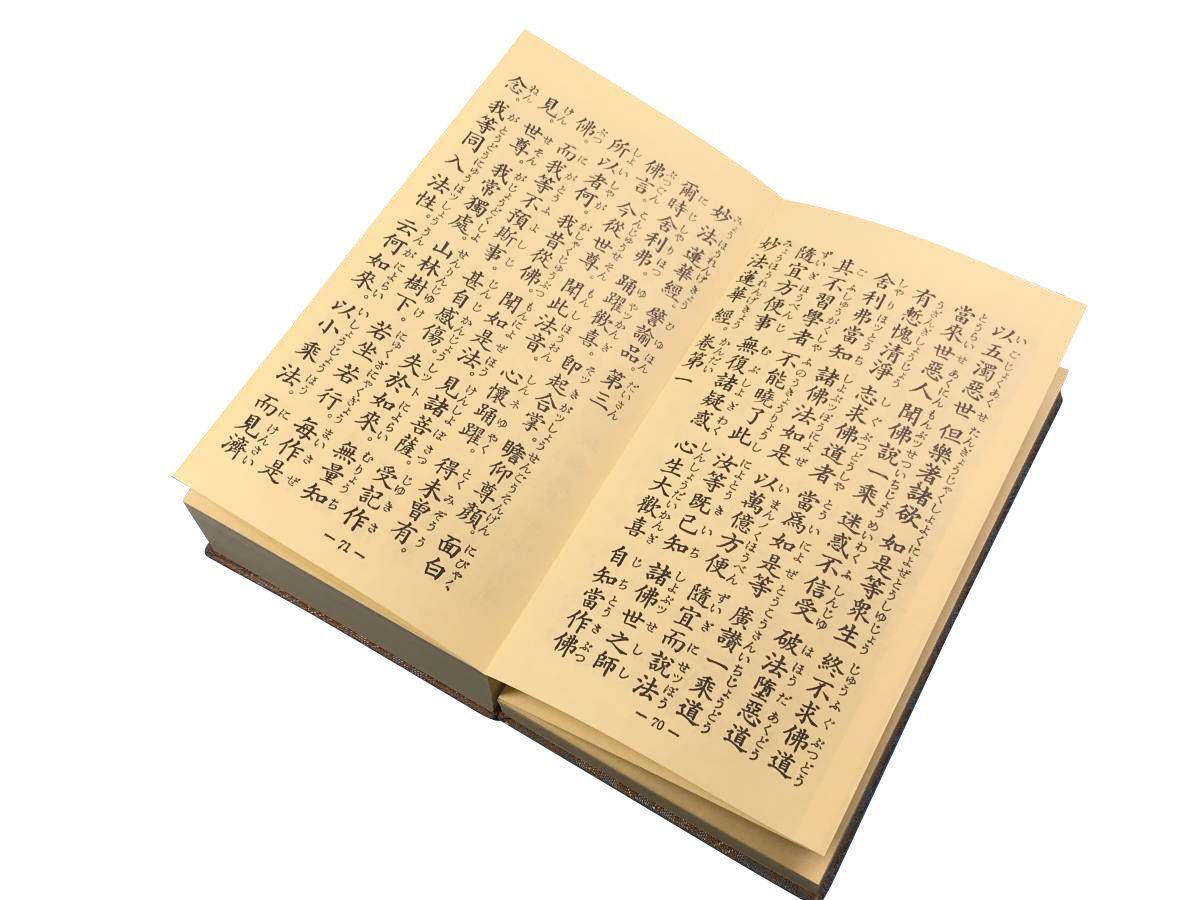 以五濁惡世 但樂著諸欲 如是等衆生 終不求佛道
當來世惡人 聞佛説一乘 迷惑不信受 破法墮惡道
有慙愧清淨 志求佛道者 當爲如是等 廣讚一乘道
舍利弗當知 諸佛法如是 以萬億方便 隨宜而説法
其不習學者 不能曉了此 汝等既已知 諸佛世之師
隨宜方便事 無復諸疑惑 心生大歡喜 自知當作佛
妙法蓮華經。卷第一
— 70 —
妙法蓮華經。譬諭品。第三
爾時舍利弗。踊躍歡喜。即起合掌 瞻仰尊顏。面白
佛言。今從世尊。聞此法音。心懷踊躍。得未曾有。
所以者何。我昔從佛。聞如是法。見諸菩薩。受記作
佛。而我等不預斯事。甚自感傷。失於如來。無量知
見。世尊。我常獨處。山林樹下 若坐若行 毎作是
念。我等同入法性。云何如來。以小乘法 而見濟
— 71 —